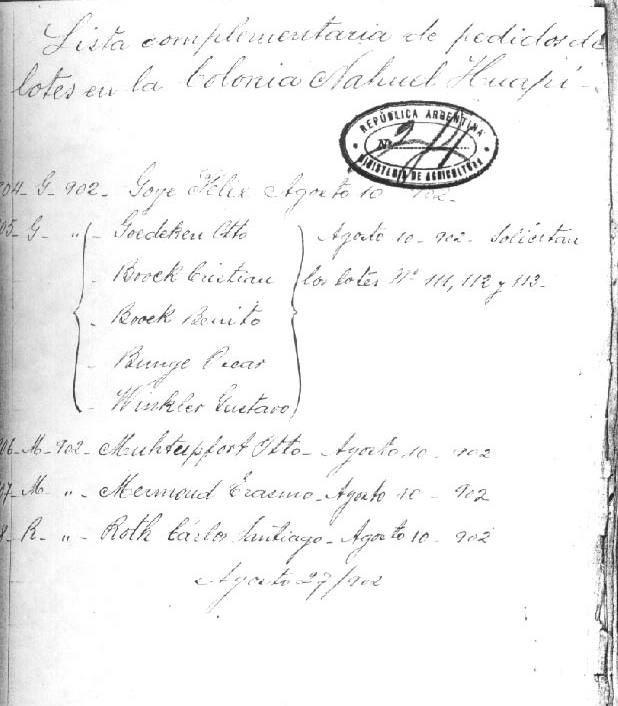 Lista complementaria de pedidos de
lotes en la Colonia Nahuel Huapí-
REPÚBLICA ARGENTINA
Nº 214
MINISTERIO DE AGRICULTURA
04- G- 902- Goye Félix Agosto 10 902-
05- G- " - Goedeken Otto Agosto 10- 902- Solicitan
- Boock Cristian los lotes Nº 111, 112 y 113-
- Boock Benito
- Bunge Oscar
- Winkler Gustavo
06- M- 902- Muhlenpfort Otto- Agosto 10- 902
07- M " - Mermoud Erasmo- Agosto 10- 902
8- R- " - Roth Cárlos Santiago- Agosto 10- 902
Agosto 27/902